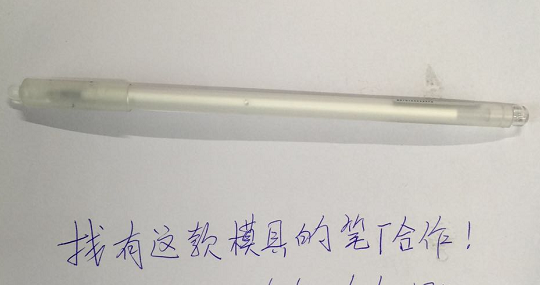 找有这款模具的笔厂合作！